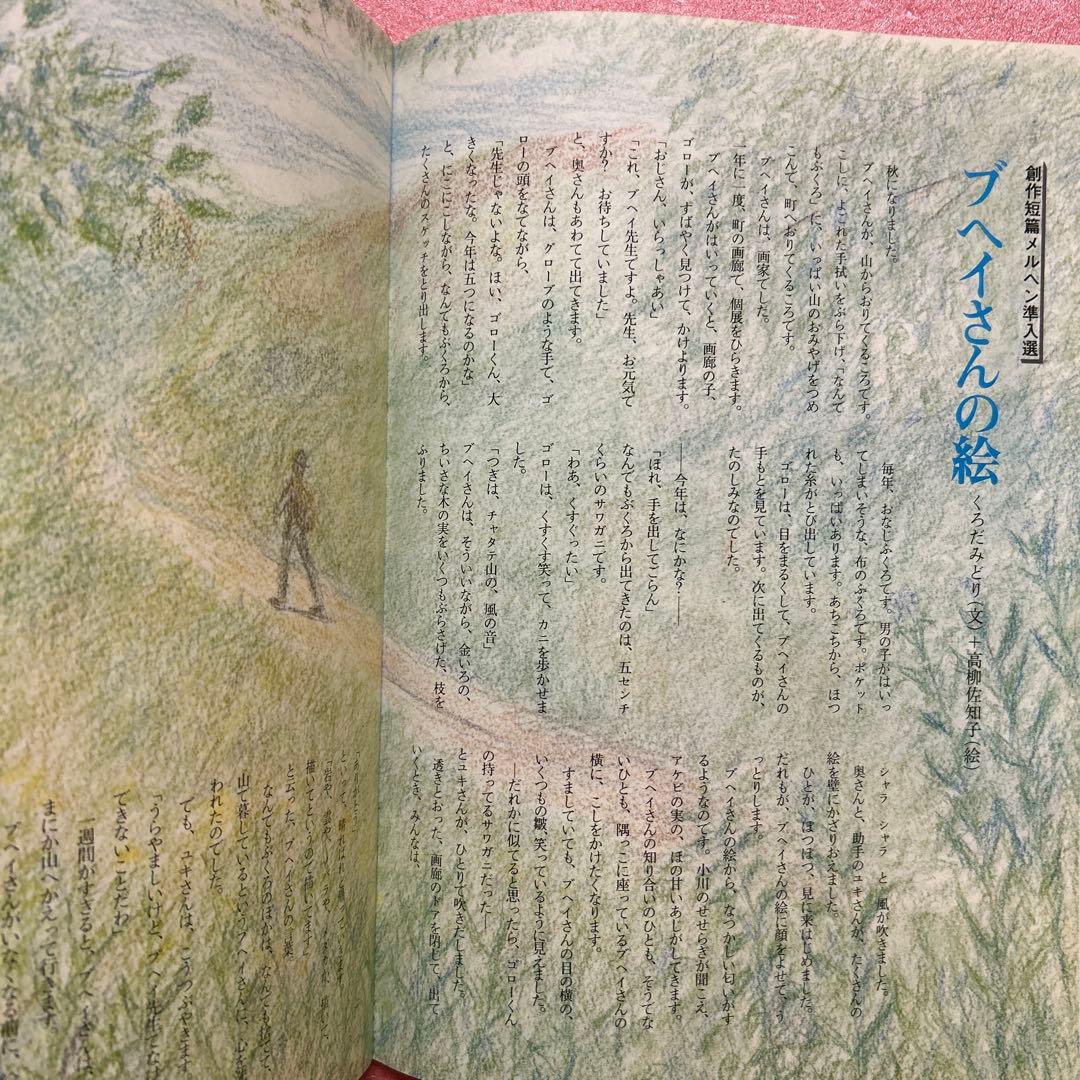 創作短篇メルヘン準入選
ブヘイさんの絵
くろだみどり(文)+高柳佐知子(絵)
秋になりました。
ブヘイさんが、山からおりてくるころです。
こしに、よごれた手拭いをぶら下げ、「なんて
もぶくろ」に、いっぱい山のおみやげをつめ
こんで、町へおりてくるころです。
ブヘイさんは、画家でした。
一年に一度、町の画廊で、個展をひらきます。
ブヘイさんがはいっていくと、画廊の子、
ゴローが、すばやく見つけて、かけよります。
「おじさん、いらっしゃあい」
「これ、ブヘイ先生ですよ。先生、お元気で
すか? お待ちしていました」
と、奥さんもあわてて出てきます。
ブヘイさんは、グローブのような手で、ゴ
ローの頭をなでながら、
「先生じゃないよな。ほい、ゴローくん、大
きくなったな。今年は五つになるのかな」
と、にこにこしながら、なんでもぶくろから、
たくさんのスケッチをとり出します。
毎年、おなじふくろです。男の子がはいっ
てしまいそうな、布のふくろです。ポケット
も、いっぱいあります。あちこちから、ほつ
れた糸がとび出しています。
ゴローは、目をまるくして、ブヘイさんの
手もとを見ています。次に出てくるものが、
たのしみなのでした。
——今年は、なにかな?——
「ほれ、手を出してごらん」
なんでもぶくろから出てきたのは、五センチ
くらいのサワガニです。
「わあ、くすぐったい」
ゴローは、くすくす笑って、カニを歩かせま
した。
「つぎは、チャタテ山の、風の音」
ブヘイさんは、そういいながら、金いろの、
ちいさな木の実をいくつもぶらさげた、枝を
ふりました。
シャラ シャラ と、風が吹きました。
奥さんと、助手のユキさんが、たくさんの
絵を壁にかざりおえました。
ひとが、ぽつぽつ、見に来はじめました。
だれもが、ブヘイさんの絵に顔をよせて、う
っとりします。
ブヘイさんの絵から、なつかしい匂いがす
るようなのです。小川のせせらぎが聞こえ、
アケビの実の、ほの甘いあじがしてきます。
ブヘイさんの知り合いのひとも、そうでな
いひとも、隅っこに座っているブヘイさんの
横に、こしをかけたくなります。
すましていても、ブヘイさんの目の横の、
いくつもの皺、笑っているように見えました。
—だれかに似てると思ったら、ゴローくん
の持ってるサワガニだった—
とユキさんが、ひとりで吹きだしました。
透きとおった、画廊のドアを閉じて、出て
いくとき、みんなは、
描いてというので描いてます」
と云った、ブヘイさんの言葉
なんでもぶくろのほかは、なんても捨てて、
山で暮しているというブヘイさんに、心を
われたのでした。
でも、ユキさんは、こうつぶやきます
「うらやましいけど、ブヘイ先生でなけ
てきないことだわ」
一週間がすぎると、ブヘイさんは、
まにか山へかえって行きます。
ブヘイさんがいなくなる前に、